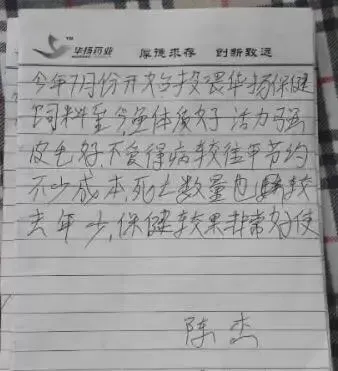 华扬药业 厚德求存 创新致远
今年7月份开始投喂华扬保健
饲料至今鱼体质好 活力强
皮毛好不爱得病较往年节约
不少成本,死亡数量也较
去年少,保健效果非常好使
陈杰